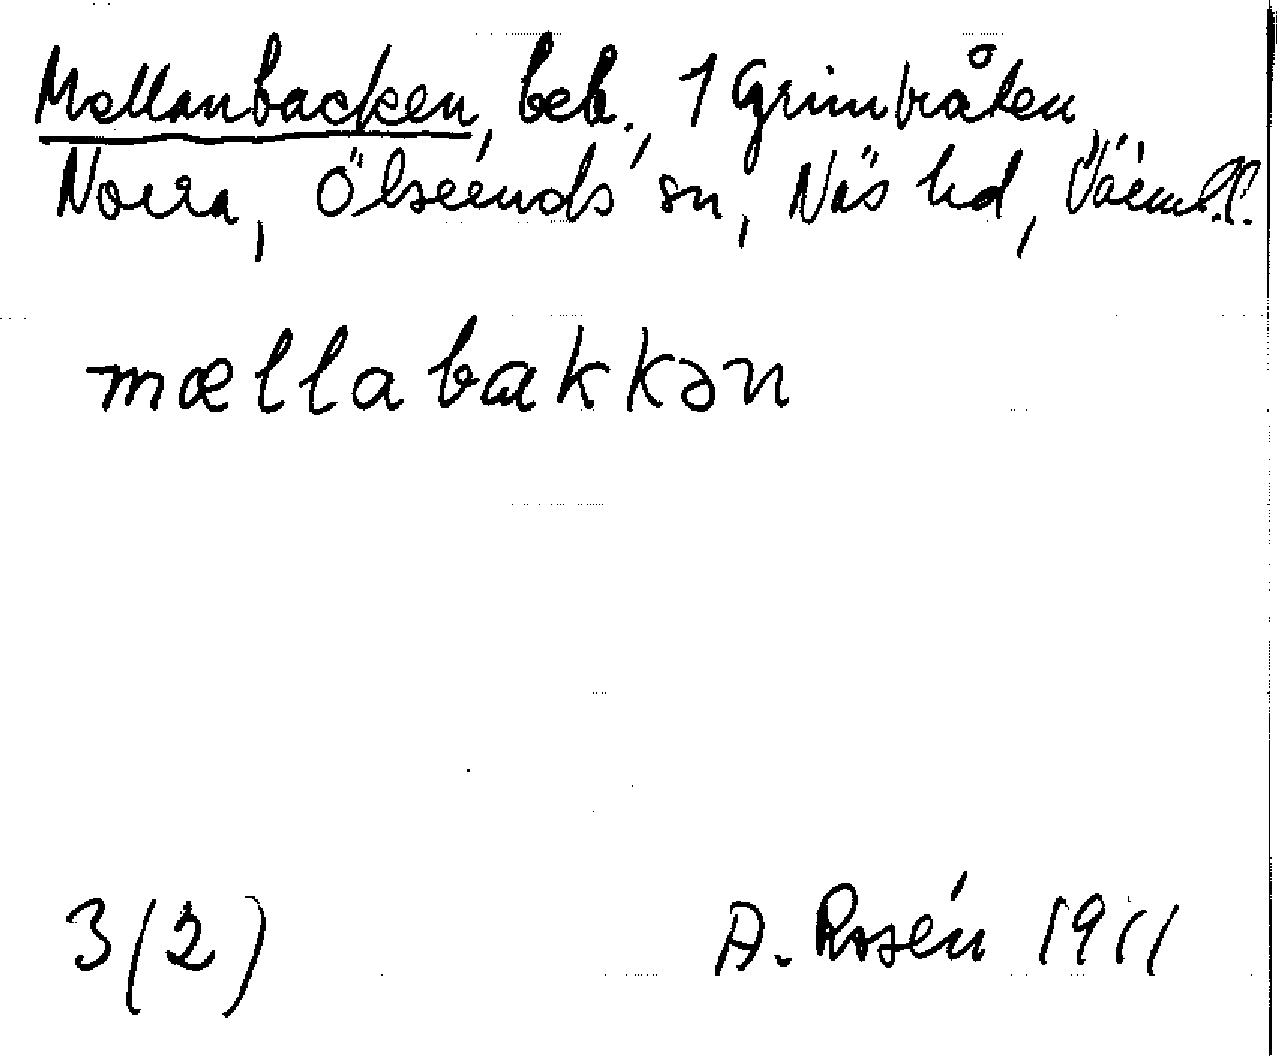 Mellanbacken, beb., 1 Grimbråten
Norra, Ölseruds sn, Näs hd, Värml.
mællabakkən
3(2)
A. Rosén 1911